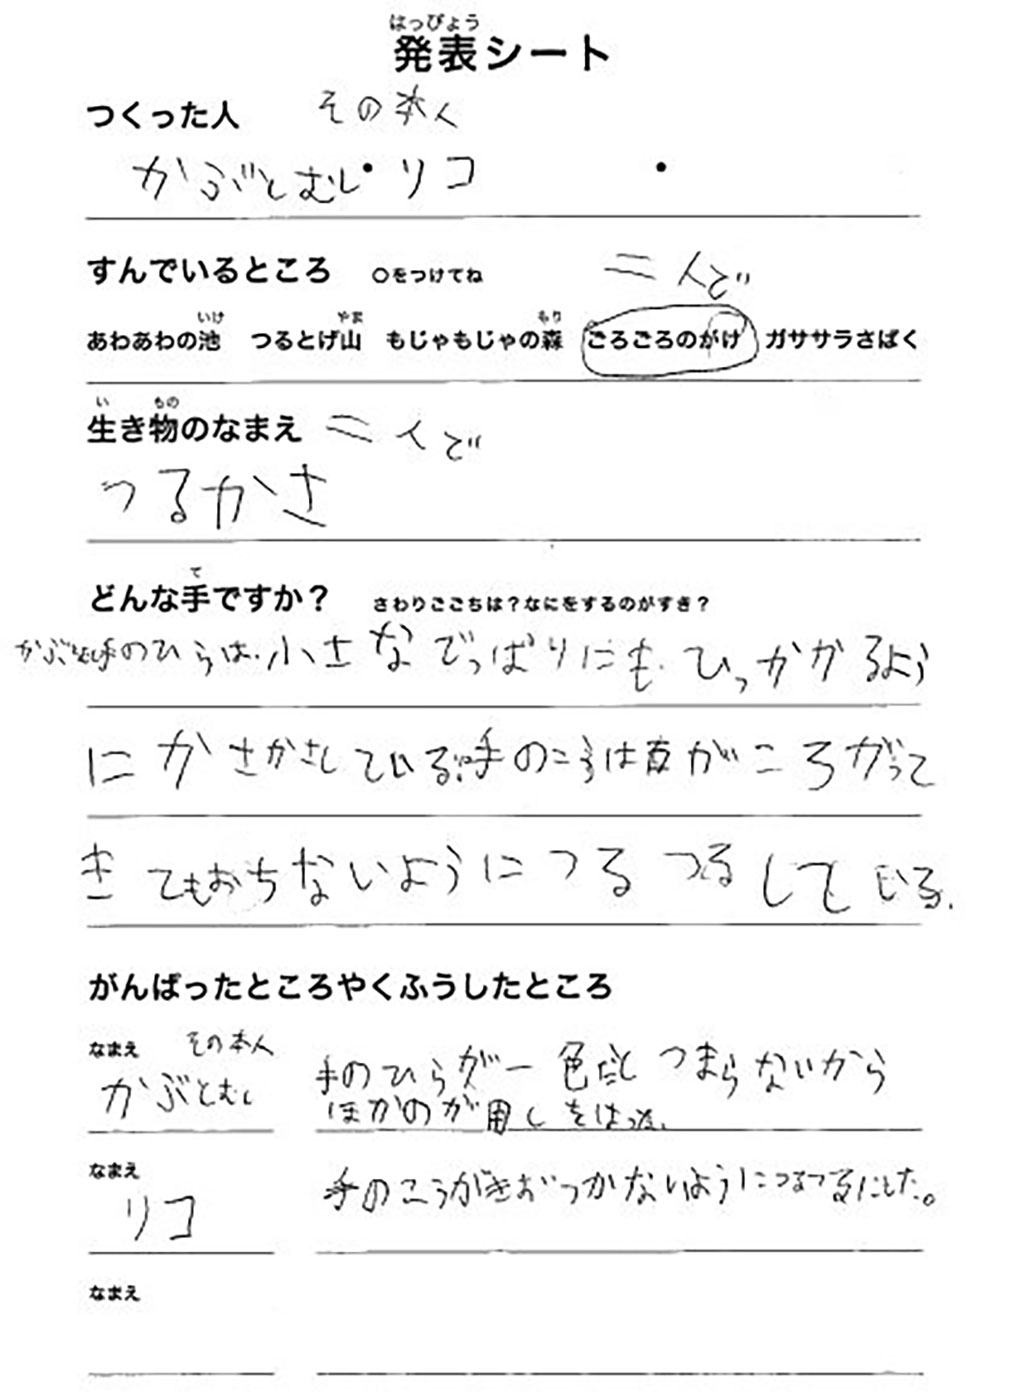 はっぴょう
発表シート
つくった人 その本人
かぶとむし・リコ ・
すんでいるところ ○をつけてね 二人で
いけ やま もり
あわあわの池 つるとげ山 もじゃもじゃの森 ごろごろのがけ ガササラさばく
い もの
生き物のなまえ 二人で
つるかさ
て
どんな手ですか？ さわりごこちは？なにをするのがすき？
のひらは、小さなでっぱりにも、ひっかかるよう
にかさかさしている。手のこうは がころがって
きてもおちないようにつるつるしている.
がんばったところやくふうしたところ
なまえ その本人
かぶとむし 手のひらが一色だとつまらないから
ほかのが用しをはった.
なまえ
リコ 手のこうが つかないようにつるつるにした。
なまえ